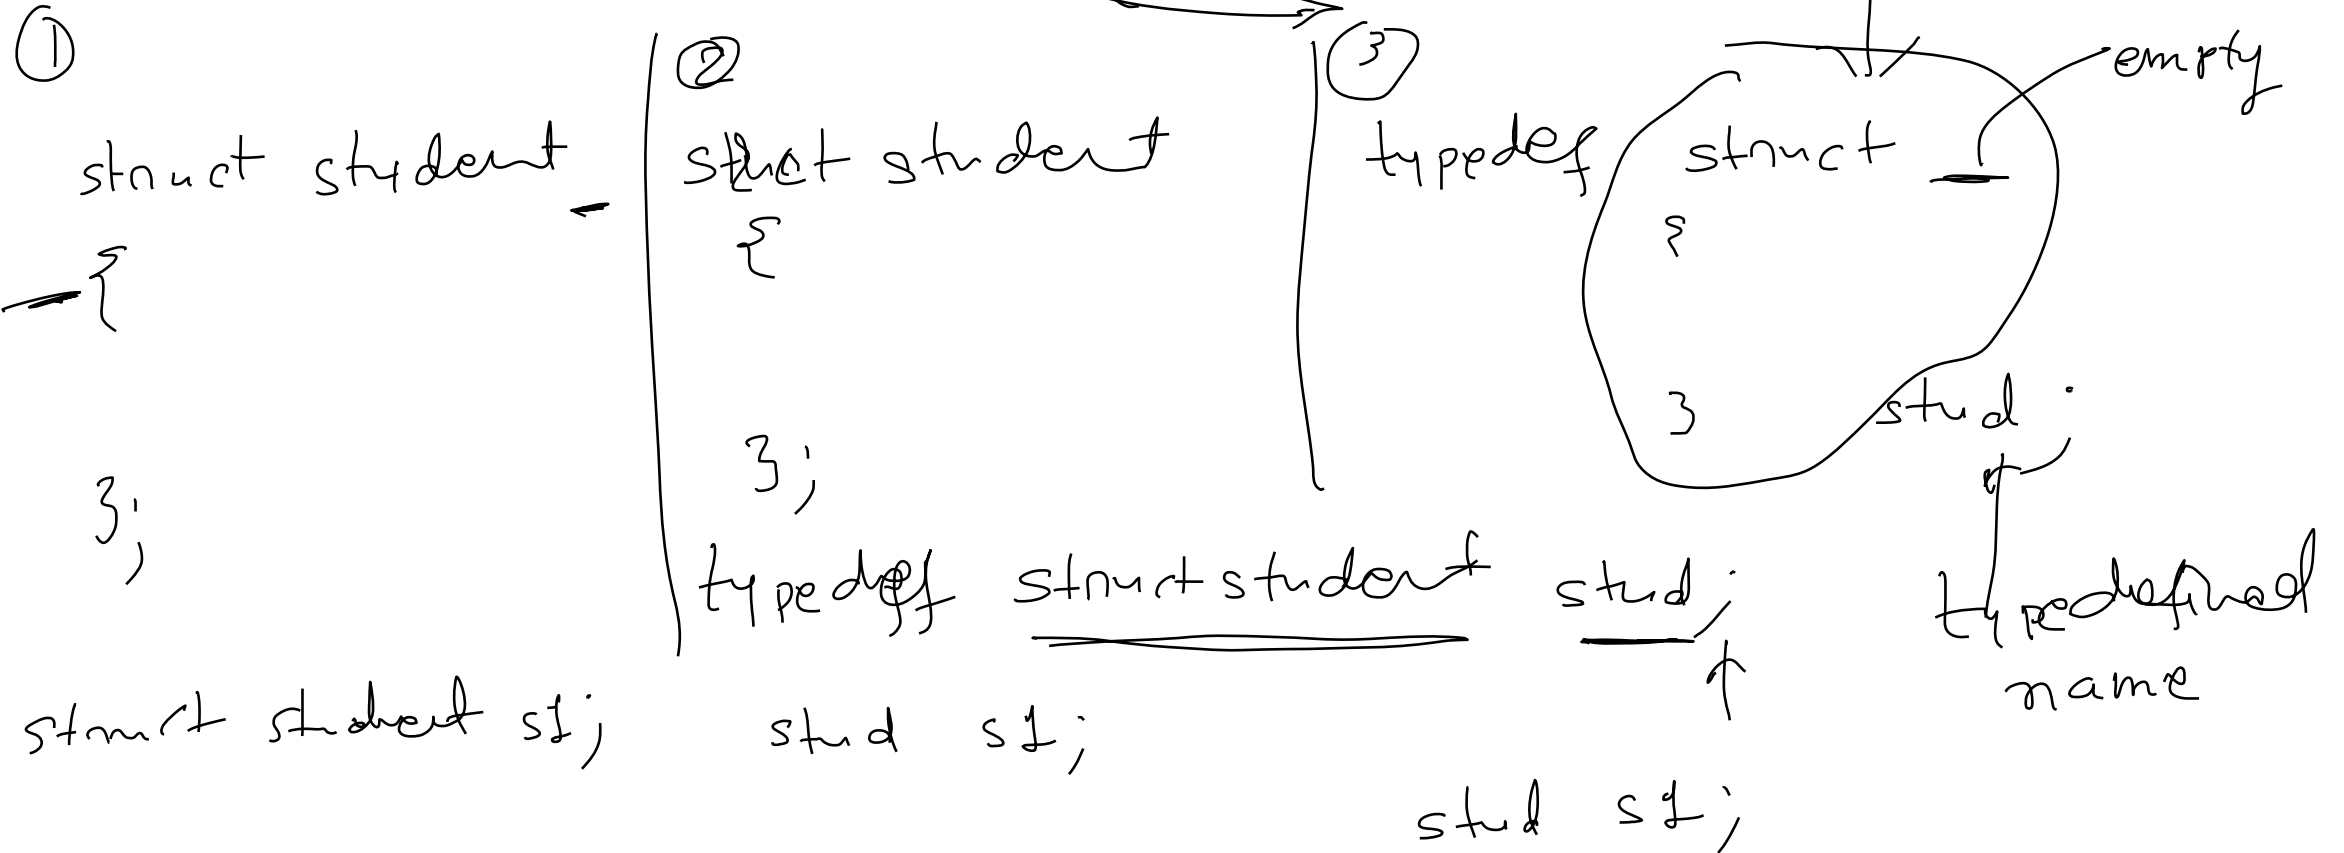 ①
struct student
{
};
struct student s1;
②
struct student
{
};
typedef struct student stud;
stud s1;
③
empty
typedef struct _
{
} stud;
typedefined
name
stud s1;